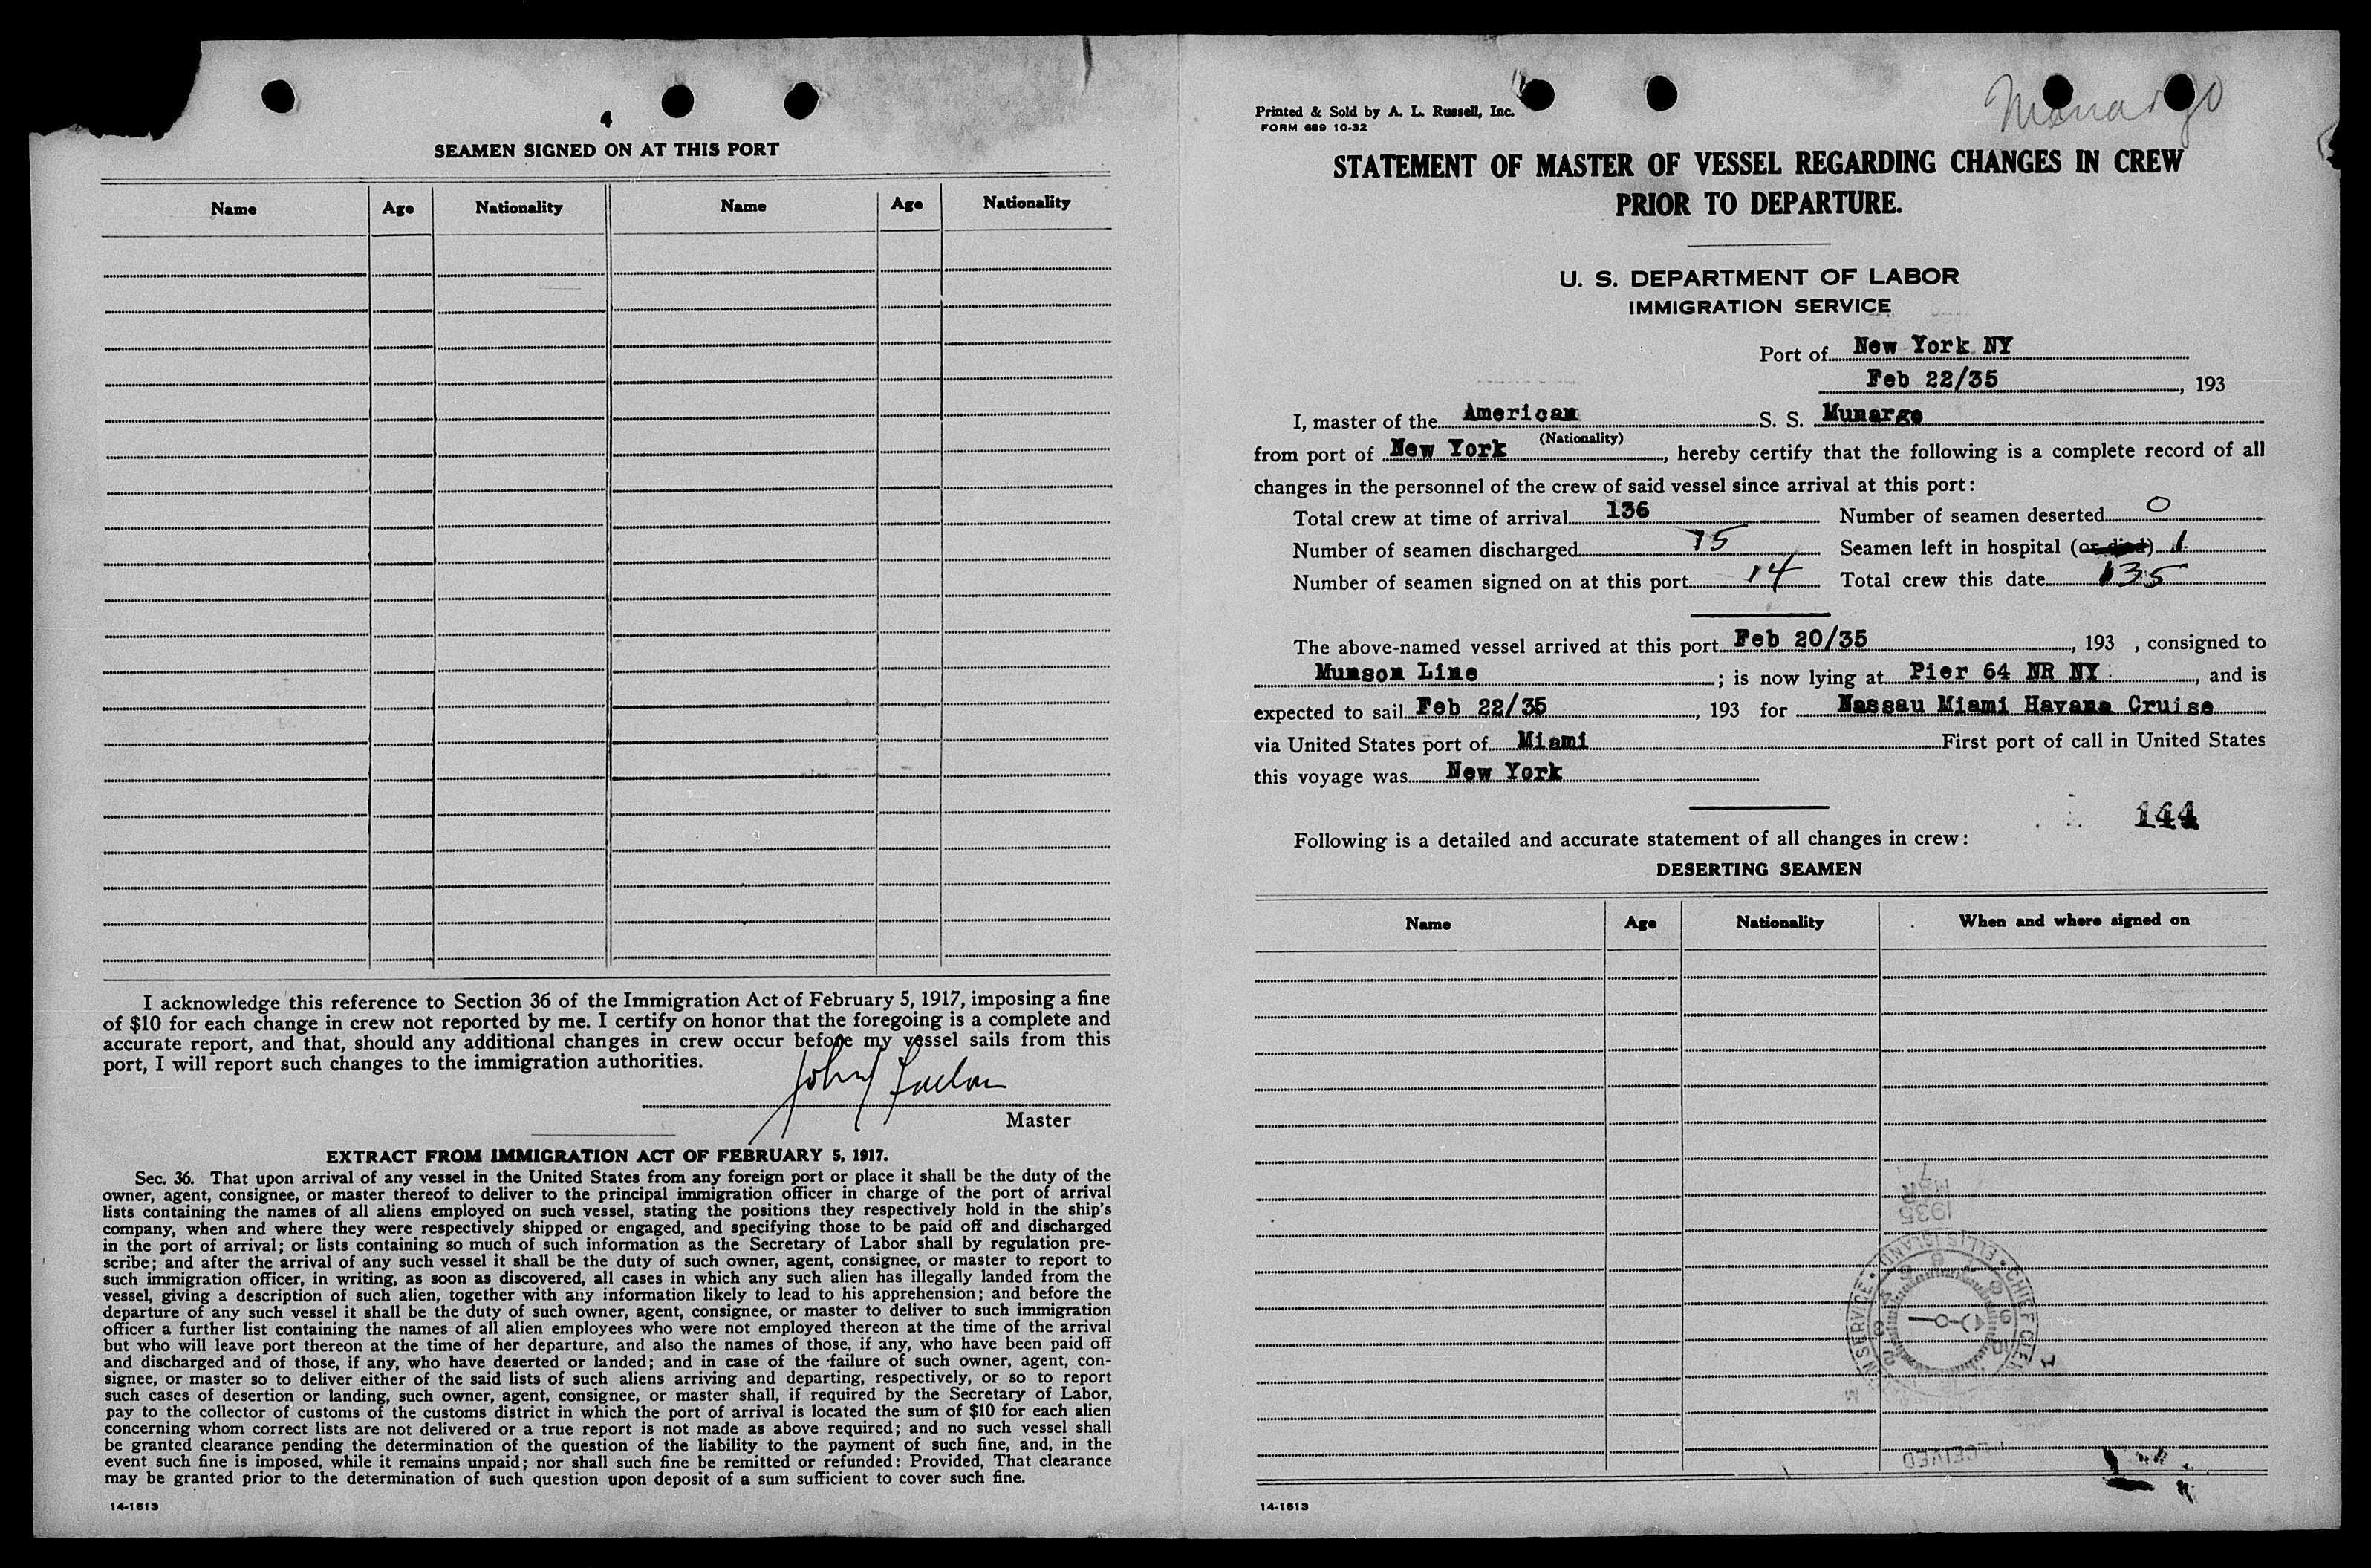 4
SEAMEN SIGNED ON AT THIS PORT
Name Age Nationality Name Age Nationality
I acknowledge this reference to Section 36 of the Immigration Act of February 5, 1917, imposing a fine
of $10 for each change in crew not reported by me. I certify on honor that the foregoing is a complete and
accurate report, and that, should any additional changes in crew occur before my vessel sails from this
port, I will report such changes to the immigration authorities.
John
Master
EXTRACT FROM IMMIGRATION ACT OF FEBRUARY 5, 1917.
Sec. 36. That upon arrival of any vessel in the United States from any foreign port or place it shall be the duty of the
owner, agent, consignee, or master thereof to deliver to the principal immigration officer in charge of the port of arrival
lists containing the names of all aliens employed on such vessel, stating the positions they respectively hold in the ship's
company, when and where they were respectively shipped or engaged, and specifying those to be paid off and discharged
in the port of arrival; or lists containing so much of such information as the Secretary of Labor shall by regulation pre-
scribe; and after the arrival of any such vessel it shall be the duty of such owner, agent, consignee, or master to report to
such immigration officer, in writing, as soon as discovered, all cases in which any such alien has illegally landed from the
vessel, giving a description of such alien, together with any information likely to lead to his apprehension; and before the
departure of any such vessel it shall be the duty of such owner, agent, consignee, or master to deliver to such immigration
officer a further list containing the names of all alien employees who were not employed thereon at the time of the arrival
but who will leave port thereon at the time of her departure, and also the names of those, if any, who have been paid off
and discharged and of those, if any, who have deserted or landed; and in case of the failure of such owner, agent, con-
signee, or master so to deliver either of the said lists of such aliens arriving and departing, respectively, or so to report
such cases of desertion or landing, such owner, agent, consignee, or master shall, if required by the Secretary of Labor,
pay to the collector of customs of the customs district in which the port of arrival is located the sum of $10 for each alien
concerning whom correct lists are not delivered or a true report is not made as above required; and no such vessel shall
be granted clearance pending the determination of the question of the liability to the payment of such fine, and, in the
event such fine is imposed, while it remains unpaid; nor shall such fine be remitted or refunded: Provided, That clearance
may be granted prior to the determination of such question upon deposit of a sum sufficient to cover such fine.
14-1613
Munargo
Printed & Sold by A. L. Russell, Inc.
FORM 689 10-32
STATEMENT OF MASTER OF VESSEL REGARDING CHANGES IN CREW
PRIOR TO DEPARTURE.
U. S. DEPARTMENT OF LABOR
IMMIGRATION SERVICE
Port of New York NY
Feb 22/35, 193
I, master of the American S. S. Munargo
(Nationality)
from port of New York, hereby certify that the following is a complete record of all
changes in the personnel of the crew of said vessel since arrival at this port:
Total crew at time of arrival 136 Number of seamen deserted 0
Number of seamen discharged 15 Seamen left in hospital (or died) 1
Number of seamen signed on at this port 14 Total crew this date 135
The above-named vessel arrived at this port Feb 20/35, 193 , consigned to
Munson Line; is now lying at Pier 64 NR NY, and is
expected to sail Feb 22/35, 193 for Nassau Miami Havana Cruise
via United States port of Miami First port of call in United States
this voyage was New York
144
Following is a detailed and accurate statement of all changes in crew:
DESERTING SEAMEN
Name Age Nationality When and where signed on
1935 MAR 7
CHIEF CLERK • ELLIS ISLAND •
RECEIVED
14-1613